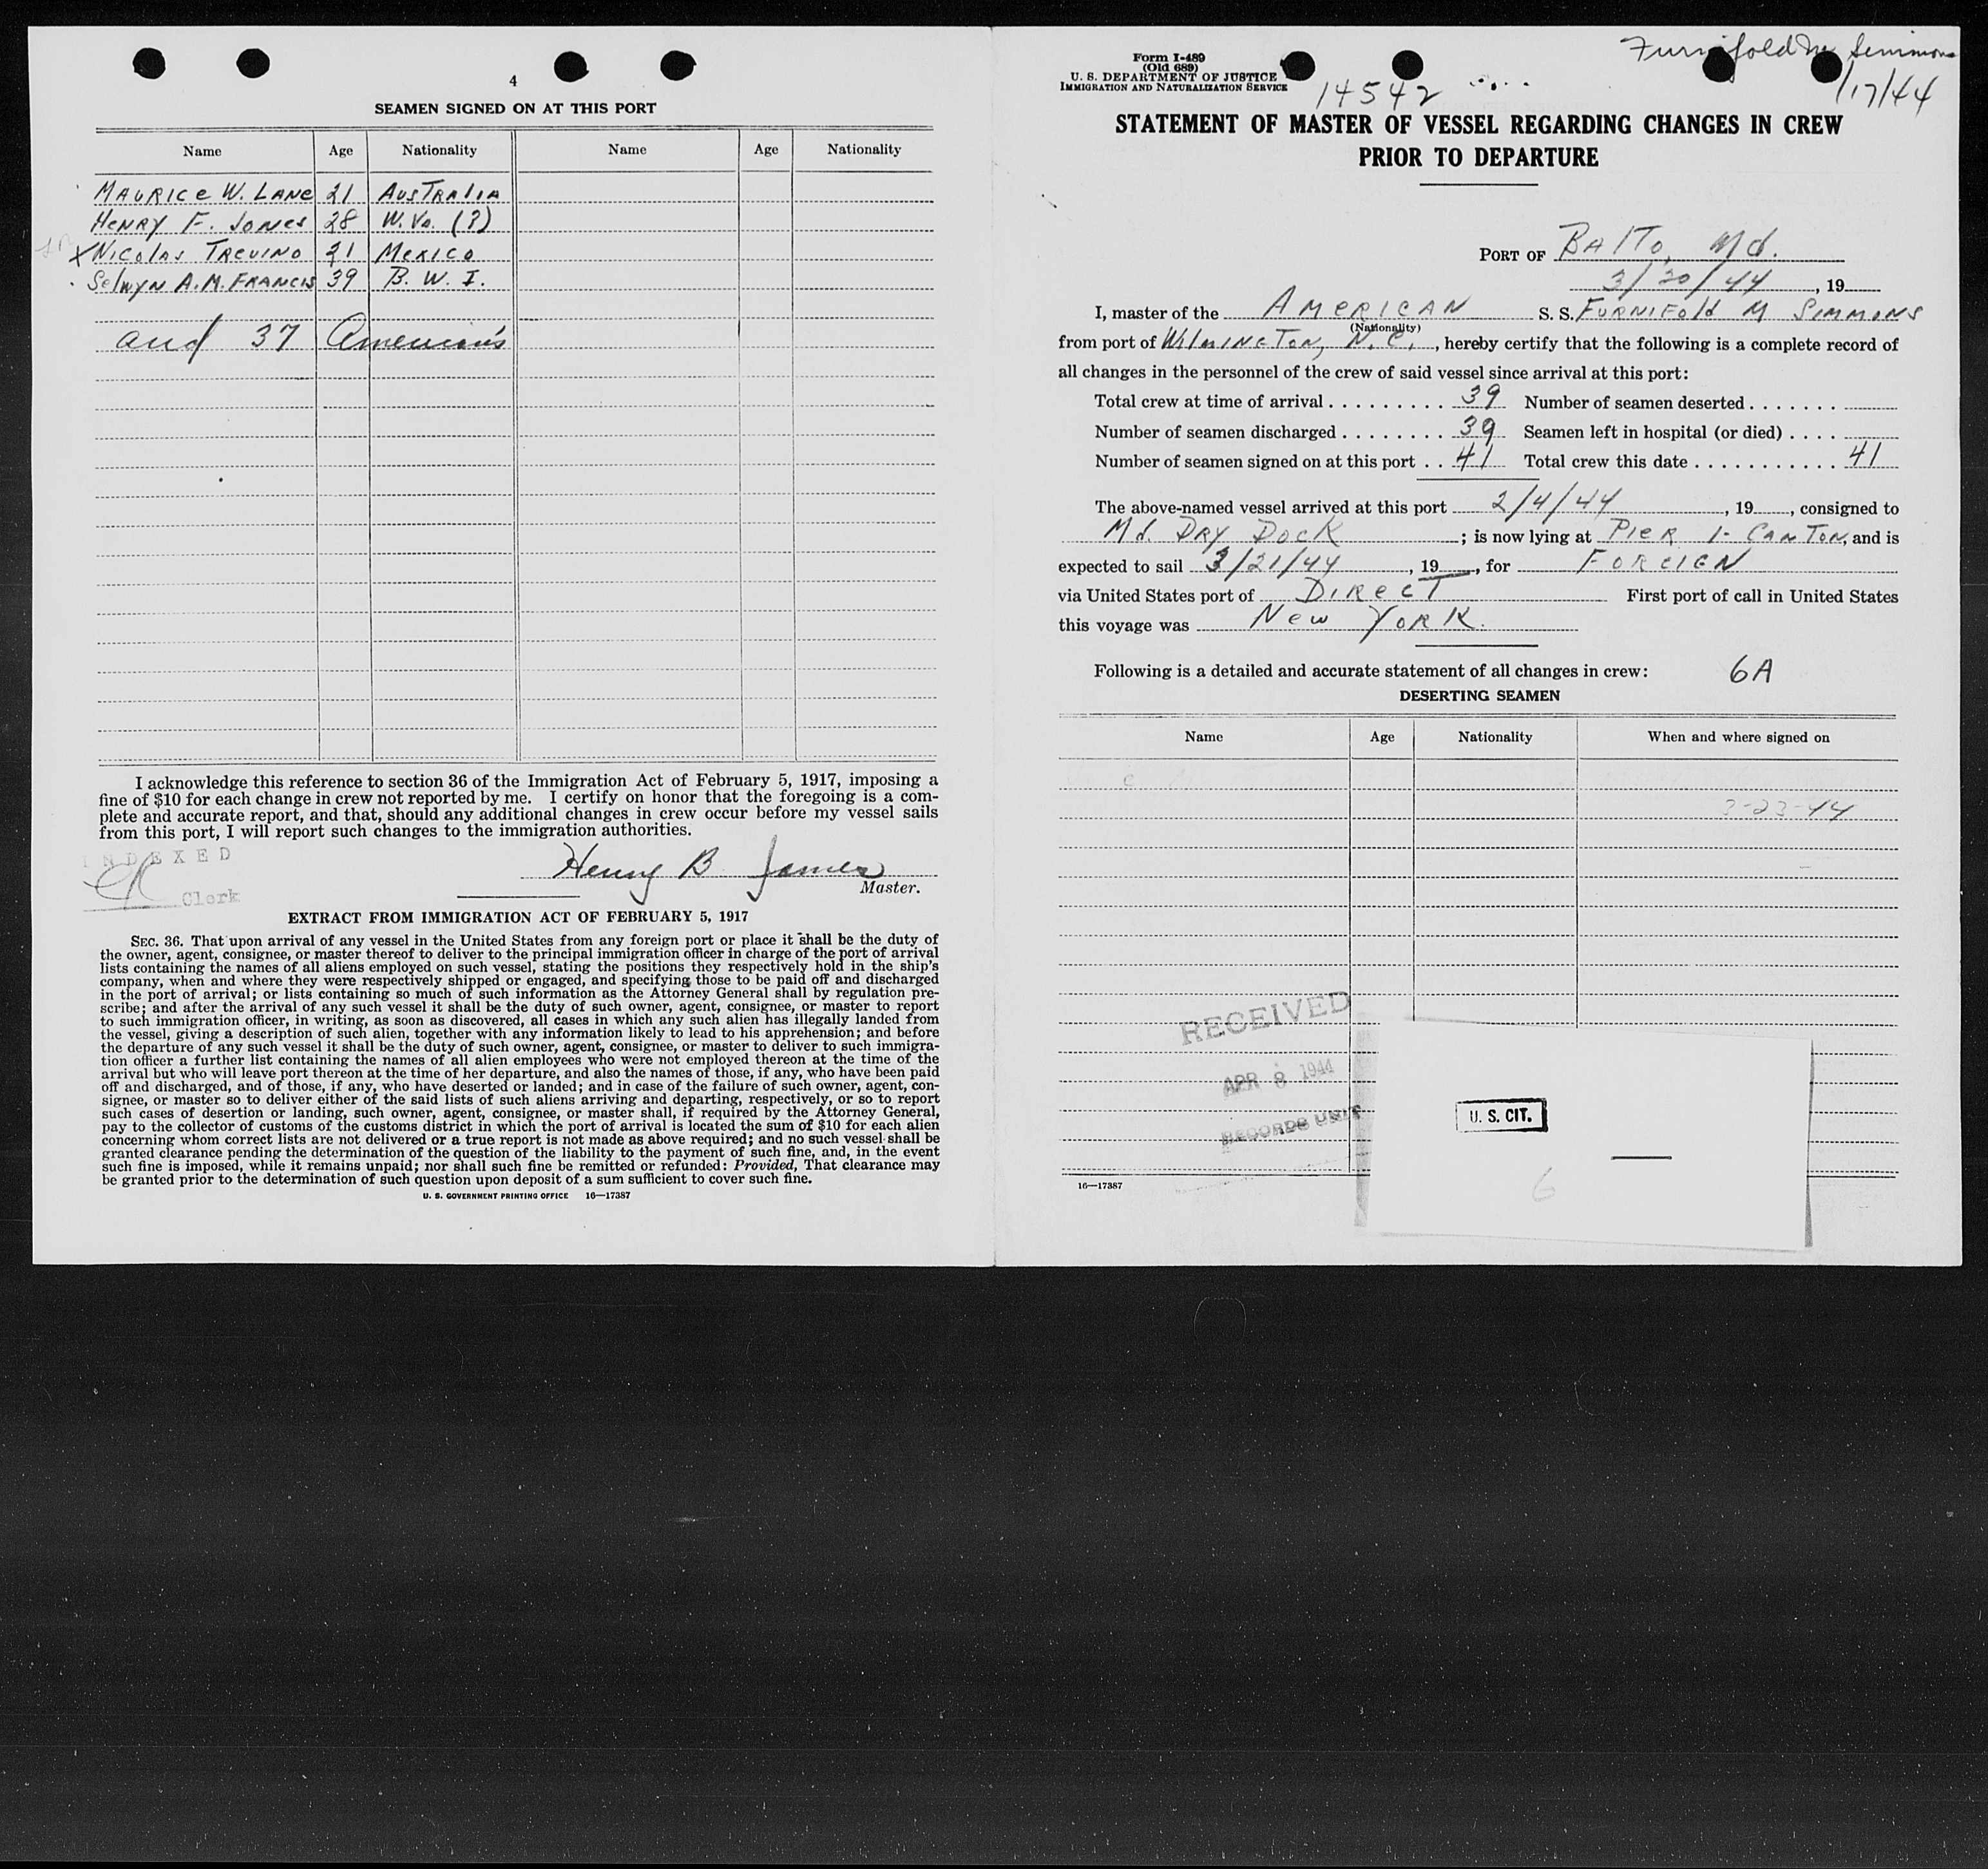 4
SEAMEN SIGNED ON AT THIS PORT
Name Age Nationality Name Age Nationality
MAURICE W. LANE 21 AUSTRALIA
HENRY F. JONES 28 W. Va. (?)
X NICOLAS TREVINO 21 MEXICO
SELWYN A. M. FRANCIS 39 B. W. I.
and 37 American's
I acknowledge this reference to section 36 of the Immigration Act of February 5, 1917, imposing a
fine of $10 for each change in crew not reported by me. I certify on honor that the foregoing is a com-
plete and accurate report, and that, should any additional changes in crew occur before my vessel sails
from this port, I will report such changes to the immigration authorities.
INDEXED
Clerk
Henry B James
Master.
EXTRACT FROM IMMIGRATION ACT OF FEBRUARY 5, 1917
SEC. 36. That upon arrival of any vessel in the United States from any foreign port or place it shall be the duty of
the owner, agent, consignee, or master thereof to deliver to the principal immigration officer in charge of the port of arrival
lists containing the names of all aliens employed on such vessel, stating the positions they respectively hold in the ship's
company, when and where they were respectively shipped or engaged, and specifying those to be paid off and discharged
in the port of arrival; or lists containing so much of such information as the Attorney General shall by regulation pre-
scribe; and after the arrival of any such vessel it shall be the duty of such owner, agent, consignee, or master to report
to such immigration officer, in writing, as soon as discovered, all cases in which any such alien has illegally landed from
the vessel, giving a description of such alien, together with any information likely to lead to his apprehension; and before
the departure of any such vessel it shall be the duty of such owner, agent, consignee, or master to deliver to such immigra-
tion officer a further list containing the names of all alien employees who were not employed thereon at the time of the
arrival but who will leave port thereon at the time of her departure, and also the names of those, if any, who have been paid
off and discharged, and of those, if any, who have deserted or landed; and in case of the failure of such owner, agent, con-
signee, or master so to deliver either of the said lists of such aliens arriving and departing, respectively, or so to report
such cases of desertion or landing, such owner, agent, consignee, or master shall, if required by the Attorney General,
pay to the collector of customs of the customs district in which the port of arrival is located the sum of $10 for each alien
concerning whom correct lists are not delivered or a true report is not made as above required; and no such vessel shall be
granted clearance pending the determination of the question of the liability to the payment of such fine, and, in the event
such fine is imposed, while it remains unpaid; nor shall such fine be remitted or refunded: Provided, That clearance may
be granted prior to the determination of such question upon deposit of a sum sufficient to cover such fine.
U. S. GOVERNMENT PRINTING OFFICE 16—17387
Form I-489
(Old 689)
U. S. DEPARTMENT OF JUSTICE
IMMIGRATION AND NATURALIZATION SERVICE
14542
Furnifold M Simmons
1/17/44
STATEMENT OF MASTER OF VESSEL REGARDING CHANGES IN CREW
PRIOR TO DEPARTURE
PORT OF BALTO, Md.
3/20/44, 19
I, master of the AMERICAN S. S. FURNIFOLD M SIMMONS
(Nationality)
from port of WILMINGTON, N. C., hereby certify that the following is a complete record of
all changes in the personnel of the crew of said vessel since arrival at this port:
Total crew at time of arrival 39 Number of seamen deserted
Number of seamen discharged 39 Seamen left in hospital (or died)
Number of seamen signed on at this port 41 Total crew this date 41
The above-named vessel arrived at this port 2/4/44, 19, consigned to
Md. DRY DOCK; is now lying at PIER 1- CANTON, and is
expected to sail 3/21/44, 19, for FOREIGN
via United States port of DIRECT First port of call in United States
this voyage was NEW YORK.
Following is a detailed and accurate statement of all changes in crew: 6A
DESERTING SEAMEN
Name Age Nationality When and where signed on
3-23-44
RECEIVED
APR 8 1944
RECORDS UNIT
U. S. CIT.
6
16—17387